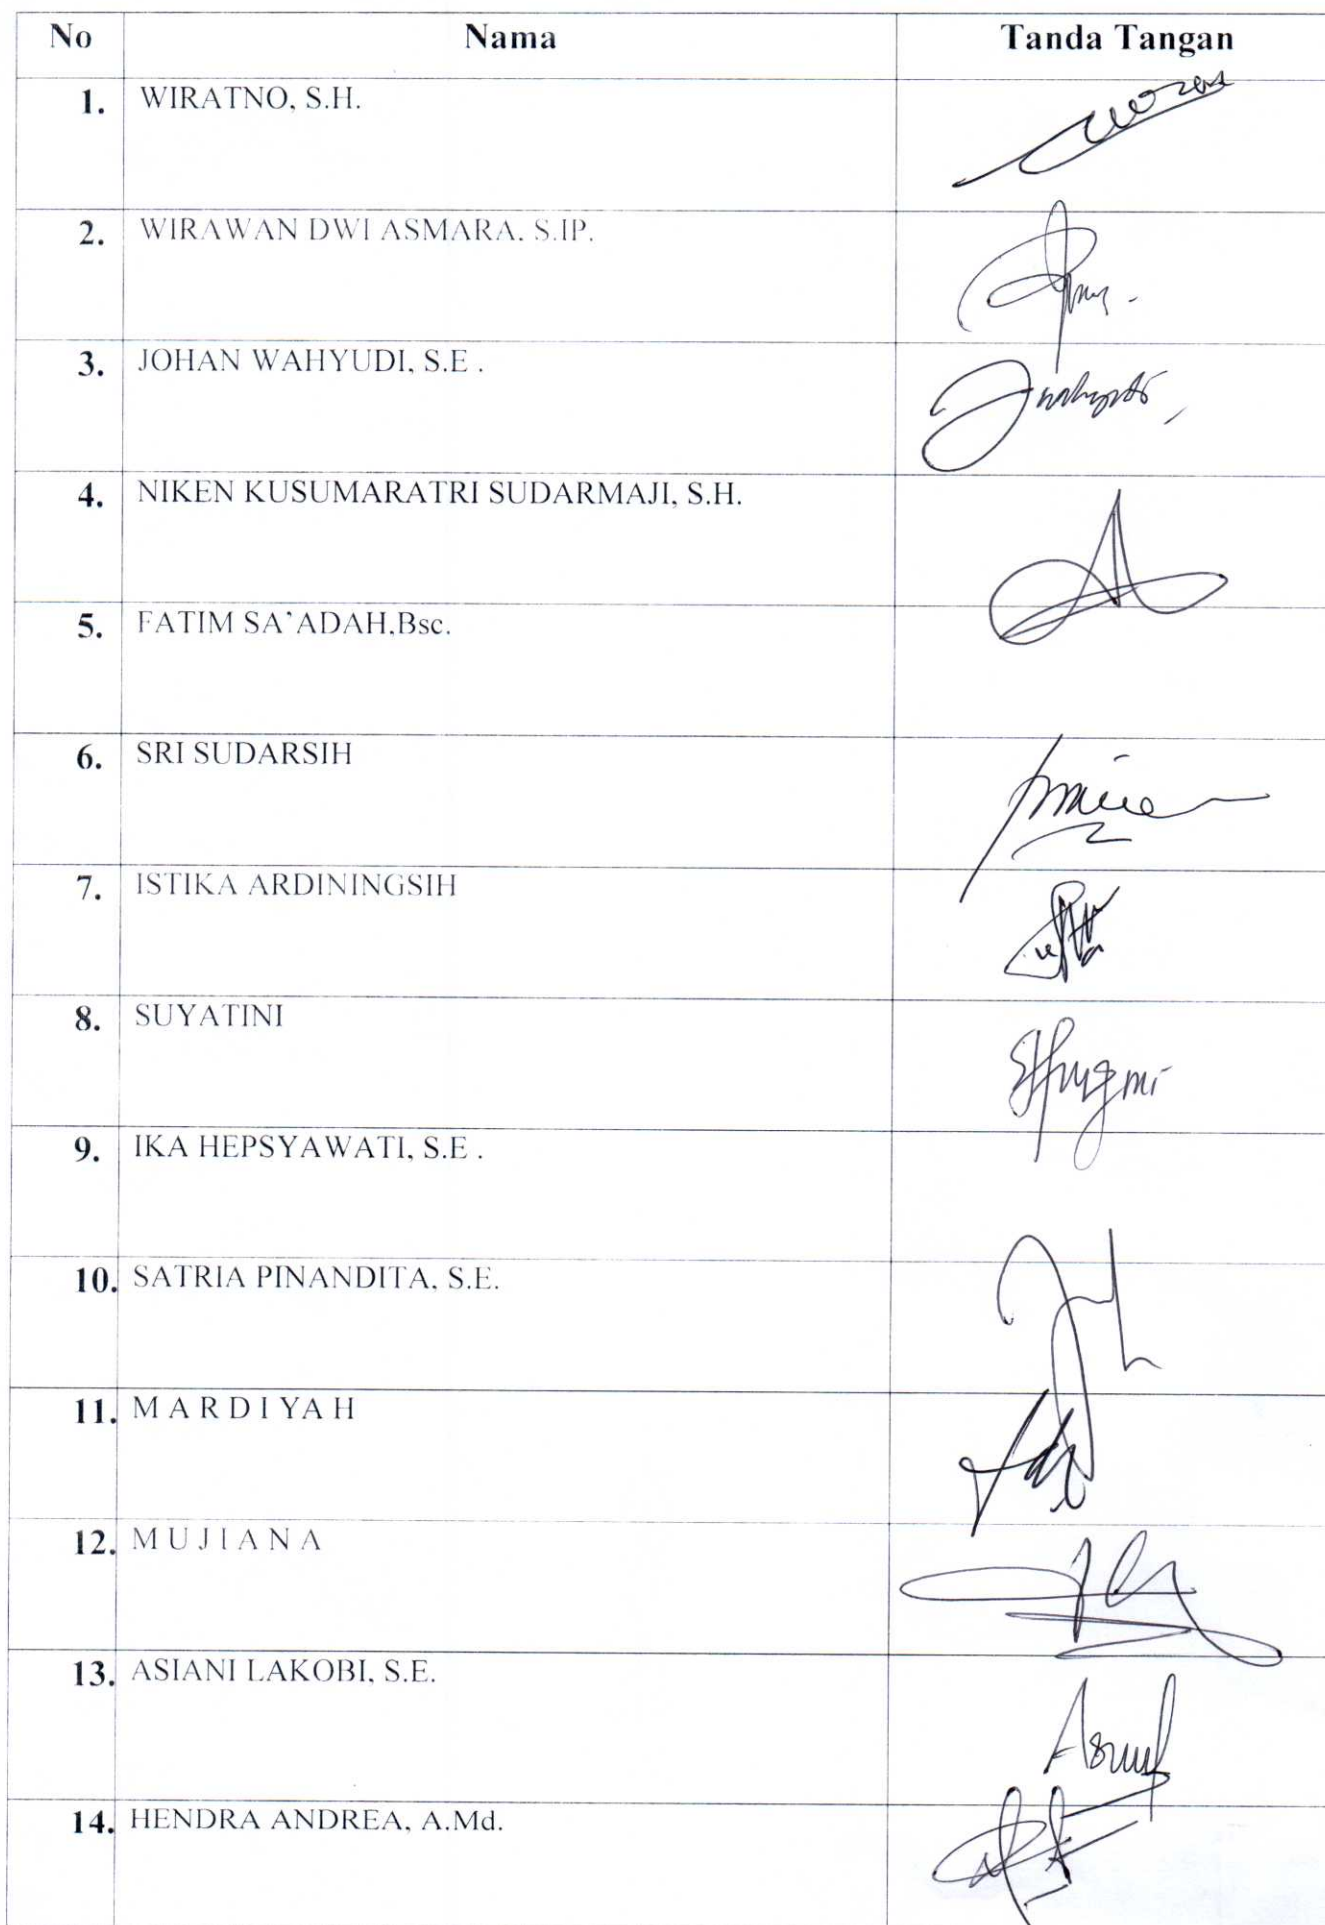 No Nama Tanda Tangan
1. WIRATNO, S.H.
2. WIRAWAN DWI ASMARA, S.IP.
3. JOHAN WAHYUDI, S.E .
4. NIKEN KUSUMARATRI SUDARMAJI, S.H.
5. FATIM SA'ADAH,Bsc.
6. SRI SUDARSIH
7. ISTIKA ARDININGSIH
8. SUYATINI
9. IKA HEPSYAWATI, S.E .
10. SATRIA PINANDITA, S.E.
11. M A R D I YA H
12. M U J I A N A
13. ASIANI LAKOBI, S.E.
14. HENDRA ANDREA, A.Md.